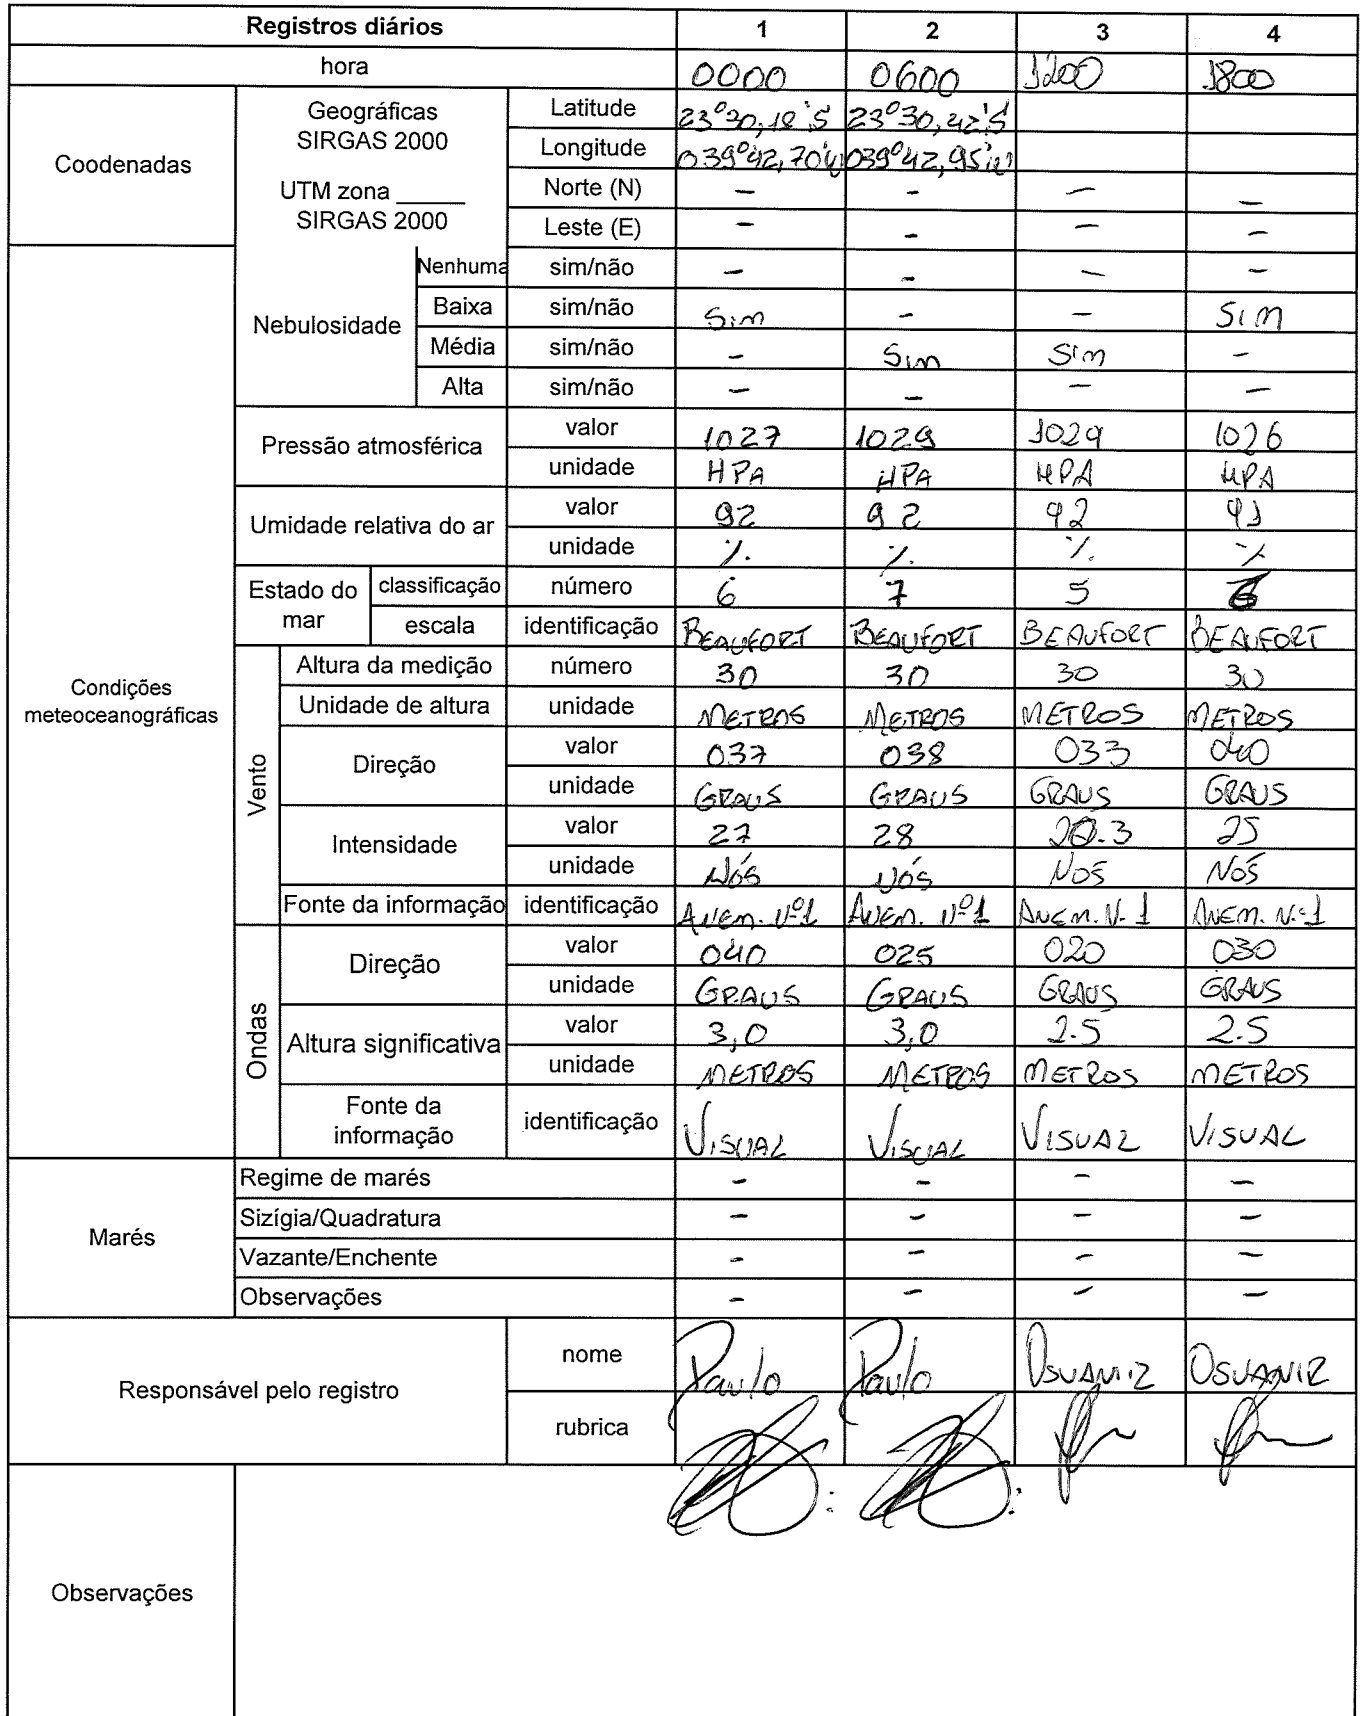 Registros diários 1 2 3 4
hora 0000 0600 1200 1800
Coodenadas
Geográficas
SIRGAS 2000
Latitude 23°30,18'S 23°30,42'S
Longitude 039°42,70'W 039°42,95'W
UTM zona _____
SIRGAS 2000
Norte (N) - - - -
Leste (E) - - - -
Condições
meteoceanográficas
Nebulosidade
Nenhuma sim/não - - - -
Baixa sim/não Sim - - SIM
Média sim/não - Sim Sim -
Alta sim/não - - - -
Pressão atmosférica
valor 1027 1029 1029 1026
unidade HPA HPA HPA HPA
Umidade relativa do ar
valor 92 92 92 91
unidade % % % %
Estado do
mar
classificação número 6 7 5
escala identificação BEAUFORT BEAUFORT BEAUFORT BEAUFORT
Vento
Altura da medição número 30 30 30 30
Unidade de altura unidade METROS METROS METROS METROS
Direção
valor 037 038 033 040
unidade GRAUS GRAUS GRAUS GRAUS
Intensidade
valor 27 28 20.3 25
unidade NÓS NÓS NOS NOS
Fonte da informação identificação ANEM. Nº1 ANEM. Nº1 ANEM. N. 1 ANEM. N.º1
Ondas
Direção
valor 040 025 020 030
unidade GRAUS GRAUS GRAUS GRAUS
Altura significativa
valor 3,0 3,0 2.5 2.5
unidade METROS METROS METROS METROS
Fonte da
informação
identificação VISUAL VISUAL VISUAL VISUAL
Marés
Regime de marés - - - -
Sizígia/Quadratura - - - -
Vazante/Enchente - - - -
Observações - - - -
Responsável pelo registro
nome Paulo Paulo OSVANIR OSVANIR
rubrica
Observações